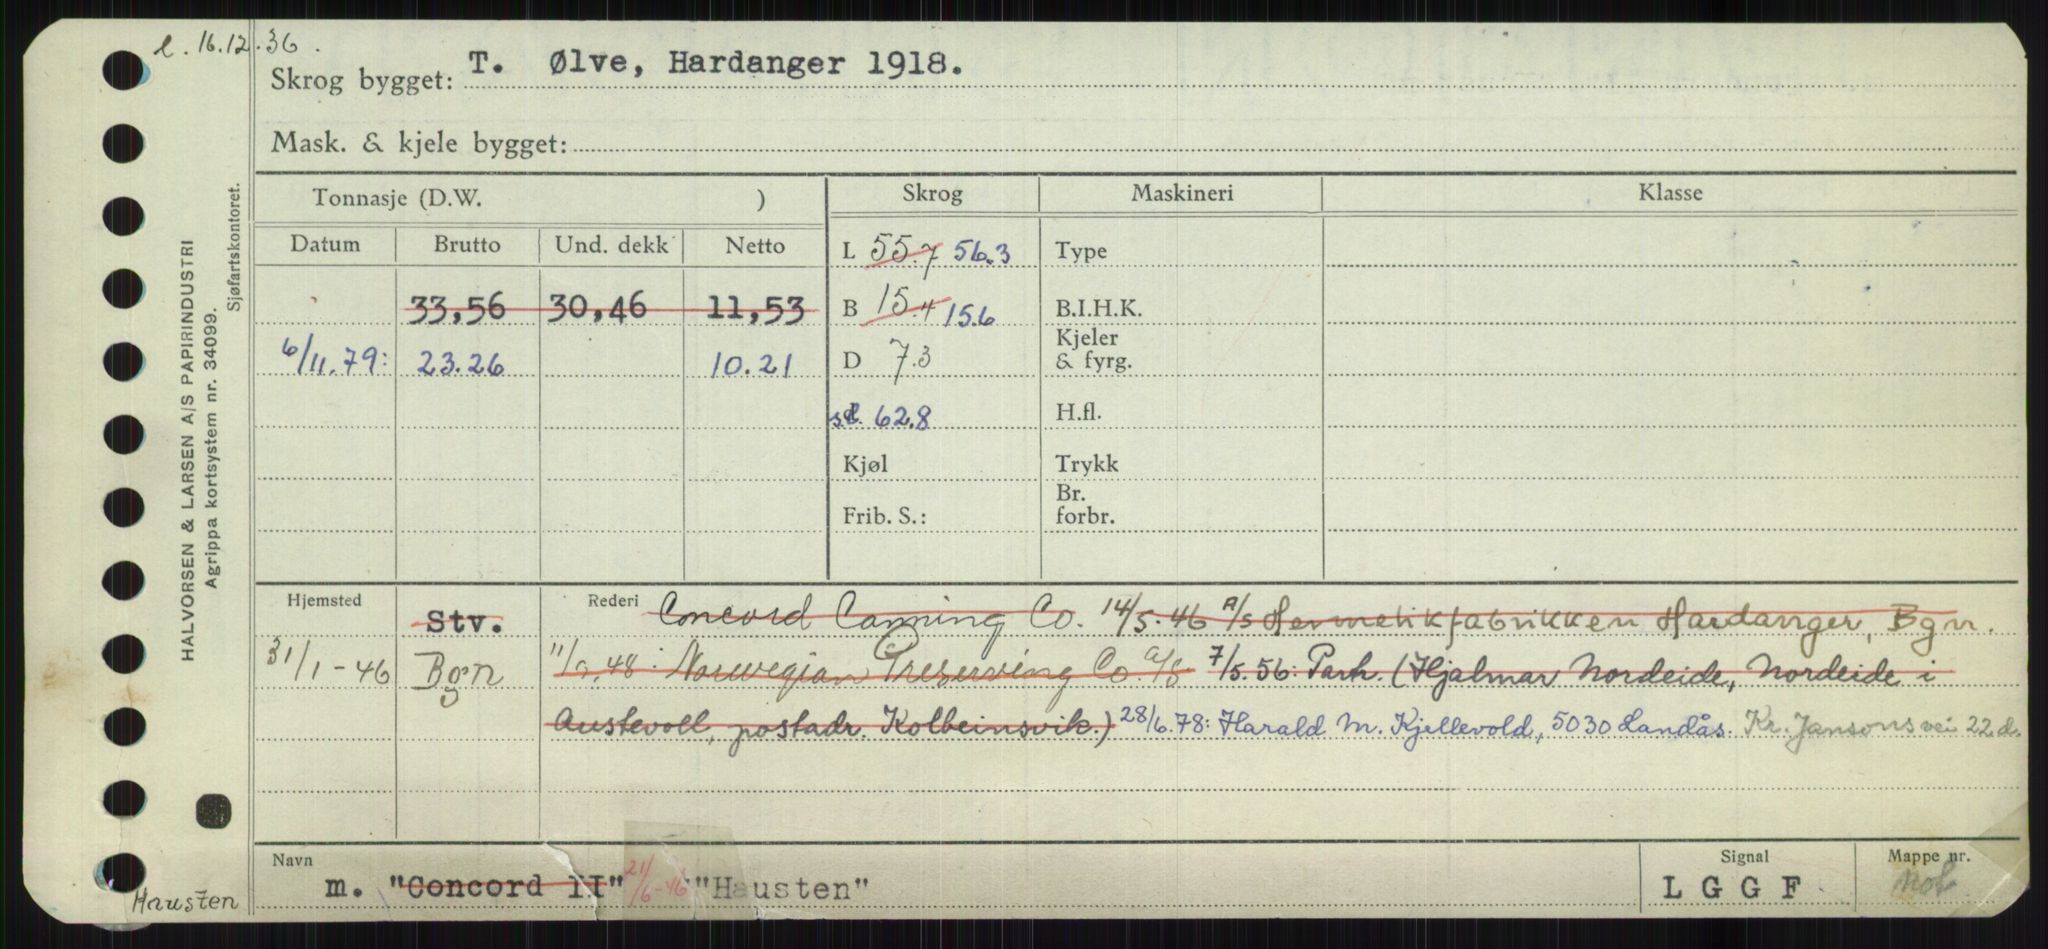 l. 16.12.36.
Skrog bygget: T. Ølve, Hardanger 1918.
Mask. & kjele bygget:
HALVORSEN & LARSEN A/S PAPIRINDUSTRI
Agrippa kortsystem nr. 34099.
Sjøfartskontoret.
Tonnasje (D.W. ) Skrog Maskineri Klasse
Datum Brutto Und. dekk Netto
L 55.7 56.3 Type
33,56 30,46 11,53 B 15.4 15.6 B.I.H.K.
6/11.79: 23.26 10.21 D 7.3 Kjeler & fyrg.
s.l. 62.8 H.fl.
Kjøl Trykk
Frib. S.: Br. forbr.
Hjemsted Stv. Rederi Concord Canning Co. 14/5-46 A/S Hermetikfabrikken Hardanger, Bgn.
31/1-46 Bgn 48: Norwegian Preserving Co. A/S 7/5.56: Parh. (Hjalmar Nordeide, Nordeide i
Austevoll, postadr. Kolbeinsvik.) 28/6.78: Harald M. Kjellevold, 5030 Landås. Kr. Jansons vei 22 d.
Navn Signal Mappe nr.
m. "Concord II" 21/6-46 "Hausten" LGGF
Hausten